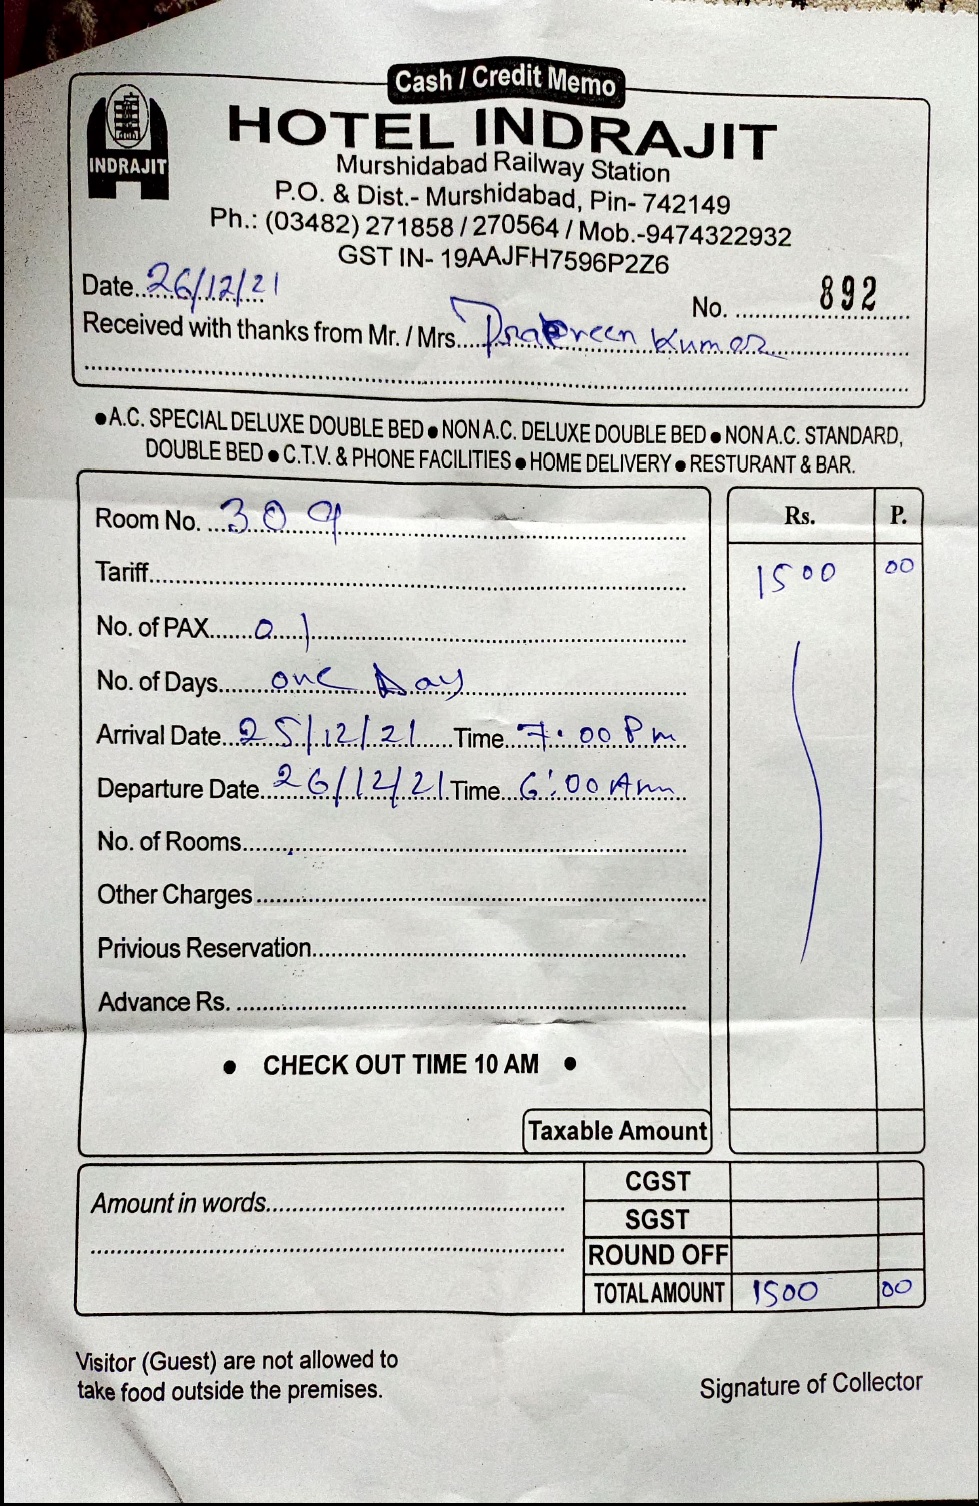 Cash / Credit Memo
INDRAJIT
HOTEL INDRAJIT
Murshidabad Railway Station
P.O. & Dist.- Murshidabad, Pin- 742149
Ph.: (03482) 271858 / 270564 / Mob.-9474322932
GST IN- 19AAJFH7596P2Z6
Date 26/12/21 No. 892
Received with thanks from Mr. / Mrs. Kumar
•A.C. SPECIAL DELUXE DOUBLE BED • NON A.C. DELUXE DOUBLE BED • NON A.C. STANDARD,
DOUBLE BED • C.T.V. & PHONE FACILITIES • HOME DELIVERY • RESTURANT & BAR.
Rs. P.
Room No. 309
Tariff 1500 00
No. of PAX 01
No. of Days one Day
Arrival Date 25/12/21 Time 7:00 Pm
Departure Date 26/12/21 Time 6:00 Am
No. of Rooms
Other Charges
Privious Reservation
Advance Rs.
• CHECK OUT TIME 10 AM •
Taxable Amount
CGST
Amount in words
SGST
ROUND OFF
TOTAL AMOUNT 1500 00
Visitor (Guest) are not allowed to
take food outside the premises.
Signature of Collector